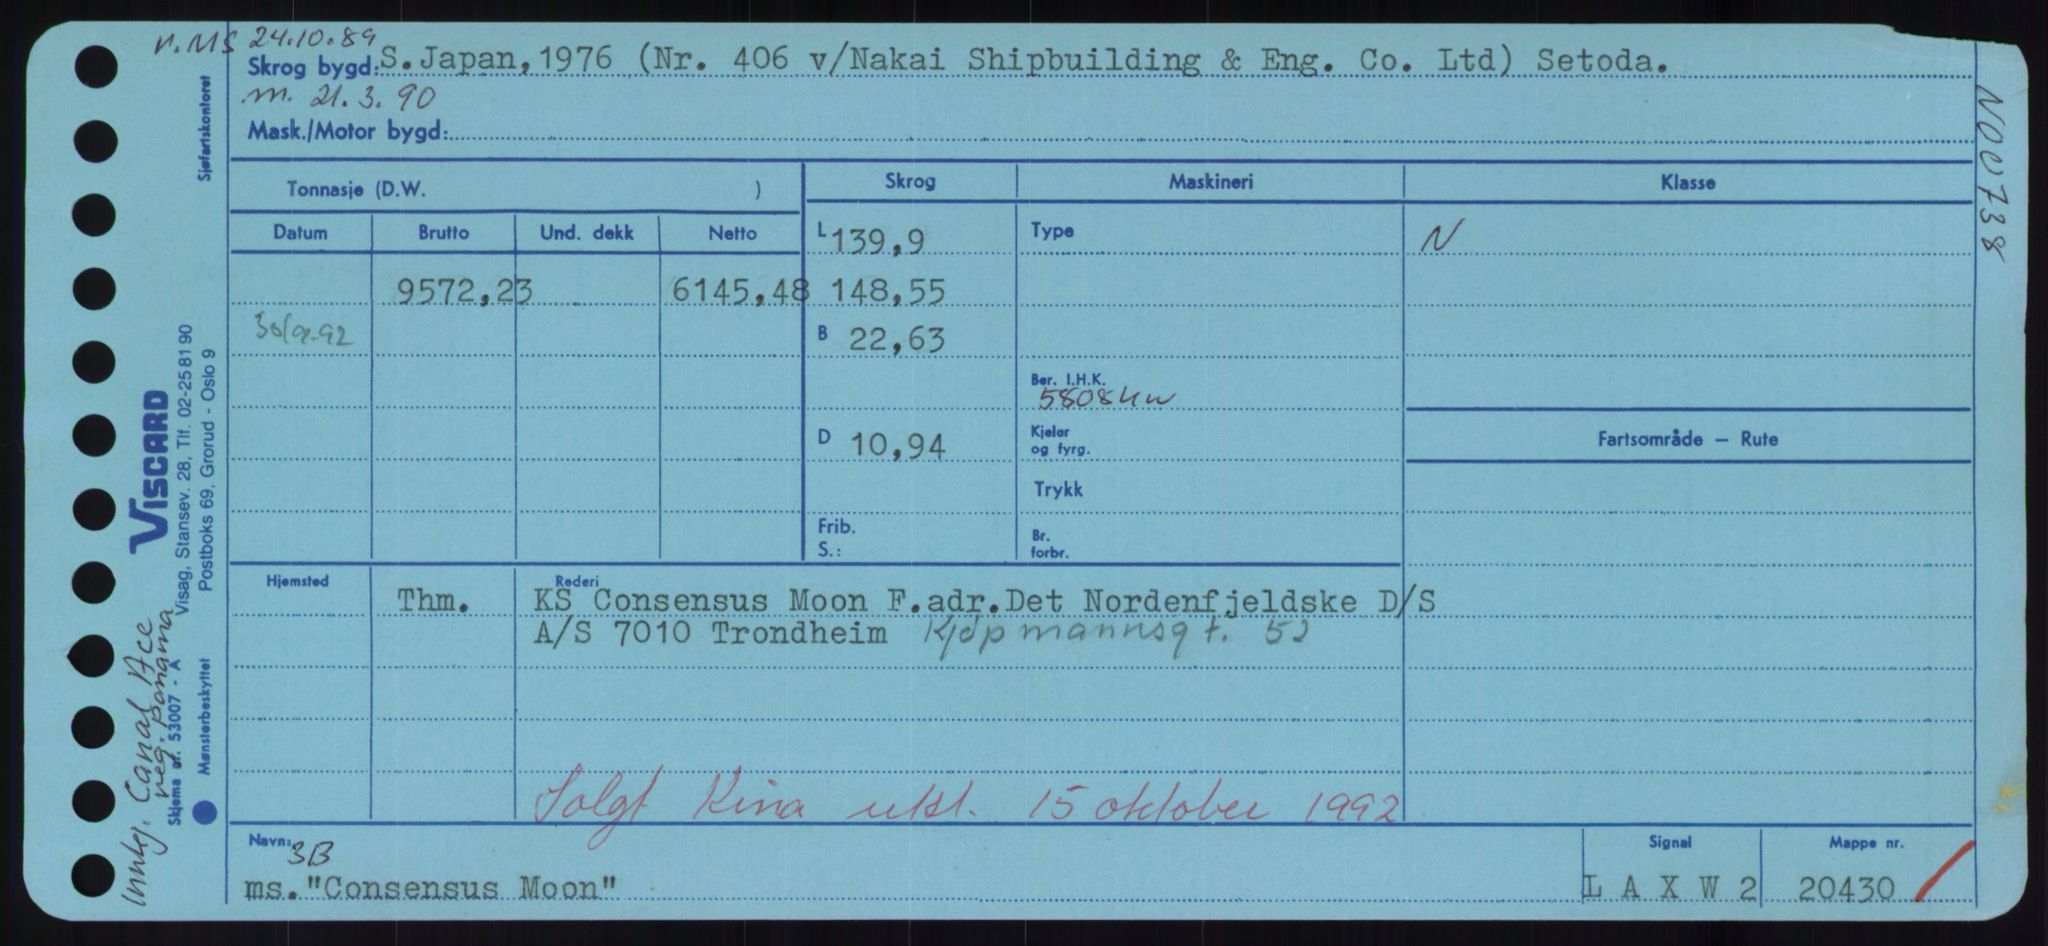 n.MS 24.10.89
Skrog bygd: S.Japan,1976 (Nr. 406 v/Nakai Shipbuilding & Eng. Co. Ltd) Setoda.
m. 21.3.90
Mask./Motor bygd:
Tonnasje (D.W. )
Skrog Maskineri Klasse
Datum Brutto Und. dekk Netto
L 139,9 Type N
9572,23 6145,48 148,55
30/9-92 B 22,63
Ber. I.H.K.
5808 kw
D 10,94 Kjeler
og fyrg.
Fartsområde — Rute
Trykk
Frib.
S.:
Br.
forbr.
Hjemsted Rederi
Thm. KS Consensus Moon F.adr.Det Nordenfjeldske D/S
A/S 7010 Trondheim Kjøpmannsgt. 52
Solgt Kina utsl. 15 oktober 1992
Navn: 3B Signal Mappe nr.
ms."Consensus Moon" L A X W 2 20430
Sjøfartskontoret
VISCARD
Visag, Stansev. 28, Tlf. 02-25 81 90
Postboks 69, Grorud - Oslo 9
Skjema nr. 53007 - A
Mønsterbeskyttet
Innkj. Canal Ace
reg. panama
N00738